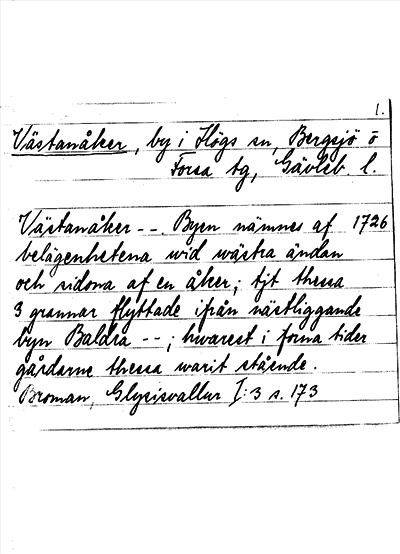 1.
Västanåker, by i Högs sn, Bergsjö o
Forsa tg, Gävleb l.
Västanåker --. Byen nämnes af 1726
belägenhetena wid wästra ändan
och sidona af en åker; tjt thessa
3 grannar flyttade ifrån nästliggande
byn Baldra --; hwarest i forna tider
gårdarne thessa warit stående.
Broman, Glysisvallur I:3 s. 173